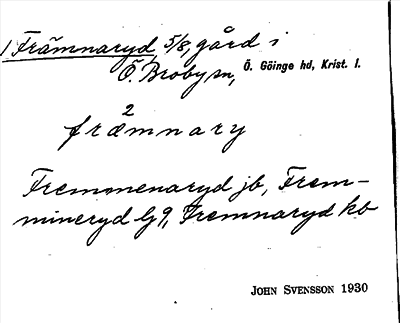 1 Främnaryd, 5/8, gård i
Ö. Broby sn, Ö. Göinge hd, Krist. l.
2
fræmnary
Fremmenaryd jb, Frem-
mineryd G9, Fremnaryd kb
JOHN SVENSSON 1930